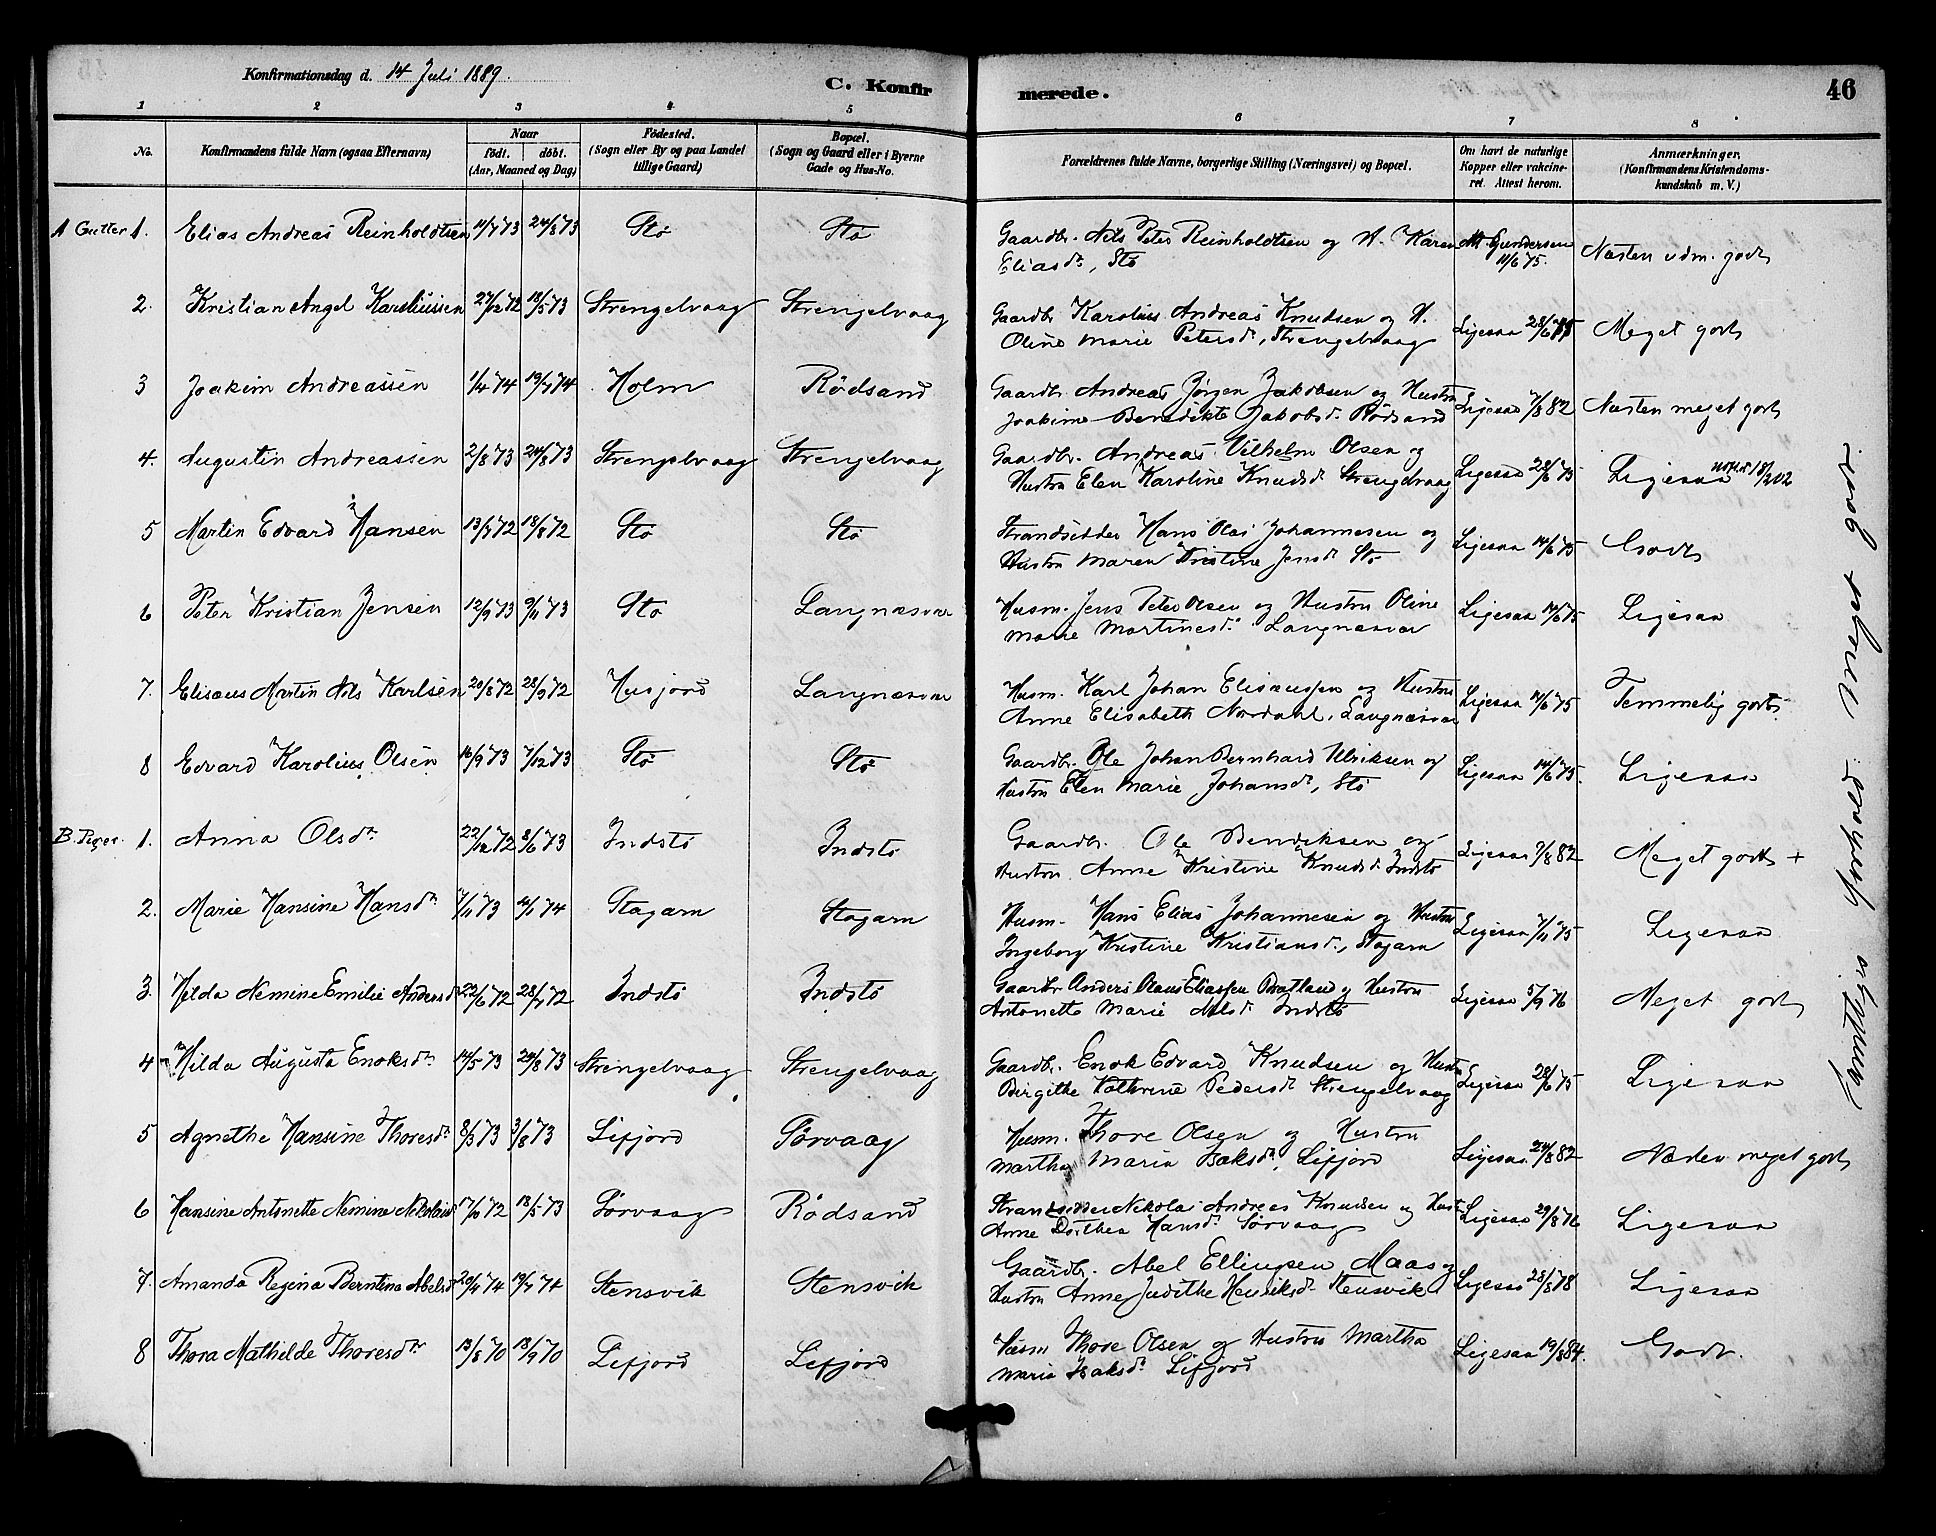 Konfirmationsdag d. 14 Juli 1889.
C. Konfirmerede.
46
1 2 3 4 5 6 7 8
No.
Konfirmandens fulde Navn (ogsaa Efternavn)
Naar
født. døbt.
(Aar, Maaned og Dag)
Fødested.
(Sogn eller By og paa Landet tillige Gaard)
Bopæl.
(Sogn og Gaard eller i Byerne Gade og Hus-No.
Forældrenes fulde Navne, borgerlige Stilling (Næringsvei) og Bopæl.
Om havt de naturlige Kopper eller vakcineret. Attest herom.
Anmærkninger.
(Konfirmandens Kristendomskundskab m. V.)
A Gutter 1. Elias Andreas Reinholdtsen 11/7 73 24/8 73 Stø Stø Gaardbr. Nils Peter Reinholdtsen og H. Karen Eliasdr, Stø Att. Gundersen 11/6 75. Næsten udm. godt
2. Kristian Angel Karoliussen 27/12 72 18/5 73 Strengelvaag Strengelvaag Gaardbr Karolius Andreas Knudsen og H. Oline Marie Petersdr, Strengelvaag Ligesaa 28/6 75 Meget godt
3 Joakim Andreassen 1/4 74 19/7 74 Holm Rødsand Gaardbr. Andreas Jørgen Jakobsen og Hustru Joakime Benedikte Jakobsdr Rødsand Ligesaa 7/8 82 Næsten meget godt
4. Augustin Andreassen 2/8 73 24/8 73 Strengelvaag Strengelvaag Gaardbr. Andreas Vilhelm Olsen og Hustru Elen Karoline Knudsdr Strengelvaag Ligesaa 28/6 75 Ligesaa
5 Martin Edvard Hansen 13/7 72 18/8 72 Stø Stø Strandsidder Hans Olai Johannesen og Hustru Maren Kristine Jensdr Stø Ligesaa 14/6 75 Godt
6 Peter Kristian Jensen 12/9 73 9/11 73 Stø Langnæsvær Husm. Jens Peter Olsen og Hustru Oline Marie Martinesdr Langnæsvær Ligesaa 14/6 75 Ligesaa
7. Elisæus Martin Nils Karlsen 20/8 72 28/9 72 Husjord Langnæsvær Husm. Karl Johan Elisæussen og Hustru Anne Elisabeth Nordahl, Langnæsvær Ligesaa 14/6 75 Temmelig godt
8 Edvard Karolius Olsen 16/9 73 7/12 73 Stø Stø Gaardbr. Ole Johan Bernhard Ulriksen og Hustru Elen Marie Johansdr, Stø Ligesaa 14/6 75. Ligesaa
B. Piger. 1. Anna Olsdr 22/12 72 8/6 73 Indstø Indstø Gaardbr. Ole Bendiksen og Hustru Anne Kristine Knudsdr Indstø Ligesaa 7/8 82 Meget godt +
2. Marie Hansine Hansdr 7/11 73 4/1 74 Stagarn Stagarn Husm. Hans Elias Johannesen og Hustru Ingeborg Kristine Kristiansdr, Stagarn Ligesaa 7/11 75 Ligesaa
3. Hilda Nemine Emilie Andersdr 22/6 72 28/7 72 Indstø Indstø Gaardbr Anders Olaus Eliassen Bratland og Hustru Antonette Marie Nilsdr Indstø Ligesaa 5/9 76 Meget godt
4 Hilda Augusta Enoksdr 14/5 73 24/8 73 Strengelvaag Strengelvaag Gaardbr. Enok Edvard Knudsen og Hustru Birgithe Kathrine Pedersdr Strengelvaag Ligesaa 28/6 75 Ligesaa
5 Agnethe Hansine Thoresdr 8/3 73 3/8 73 Lifjord Sørvaag Husm. Thore Olsen og Hustru Martha Maria Isaksdr, Lifjord Ligesaa. 24/8 82 Næsten meget godt
6 Hansine Antonette Nemine Nikolaisdr 17/10 72 18/5 73 Sørvaag Rødsand Strandsidder Nikolai Andreas Knudsen og Hustr Anne Dorthea Hansdr Sørvaag Ligesaa 29/8 76 Ligesaa
7. Amanda Regina Berntina Abelsdr 20/4 74 19/7 74 Stensvik Stensvik Gaardbr. Abel Ellingsen Maas og Hustru Anne Judithe Henriksdr Stensvik Ligesaa 28/8 78 Ligesaa
8 Thora Mathilde Thoresdr 13/8 70 18/9 70 Lifjord Lifjord Husm Thore Olsen og Hustru Martha Maria Isaksdr Lifjord Ligesaa 19/8 84. Godt.
Samtliges forhold meget godt.